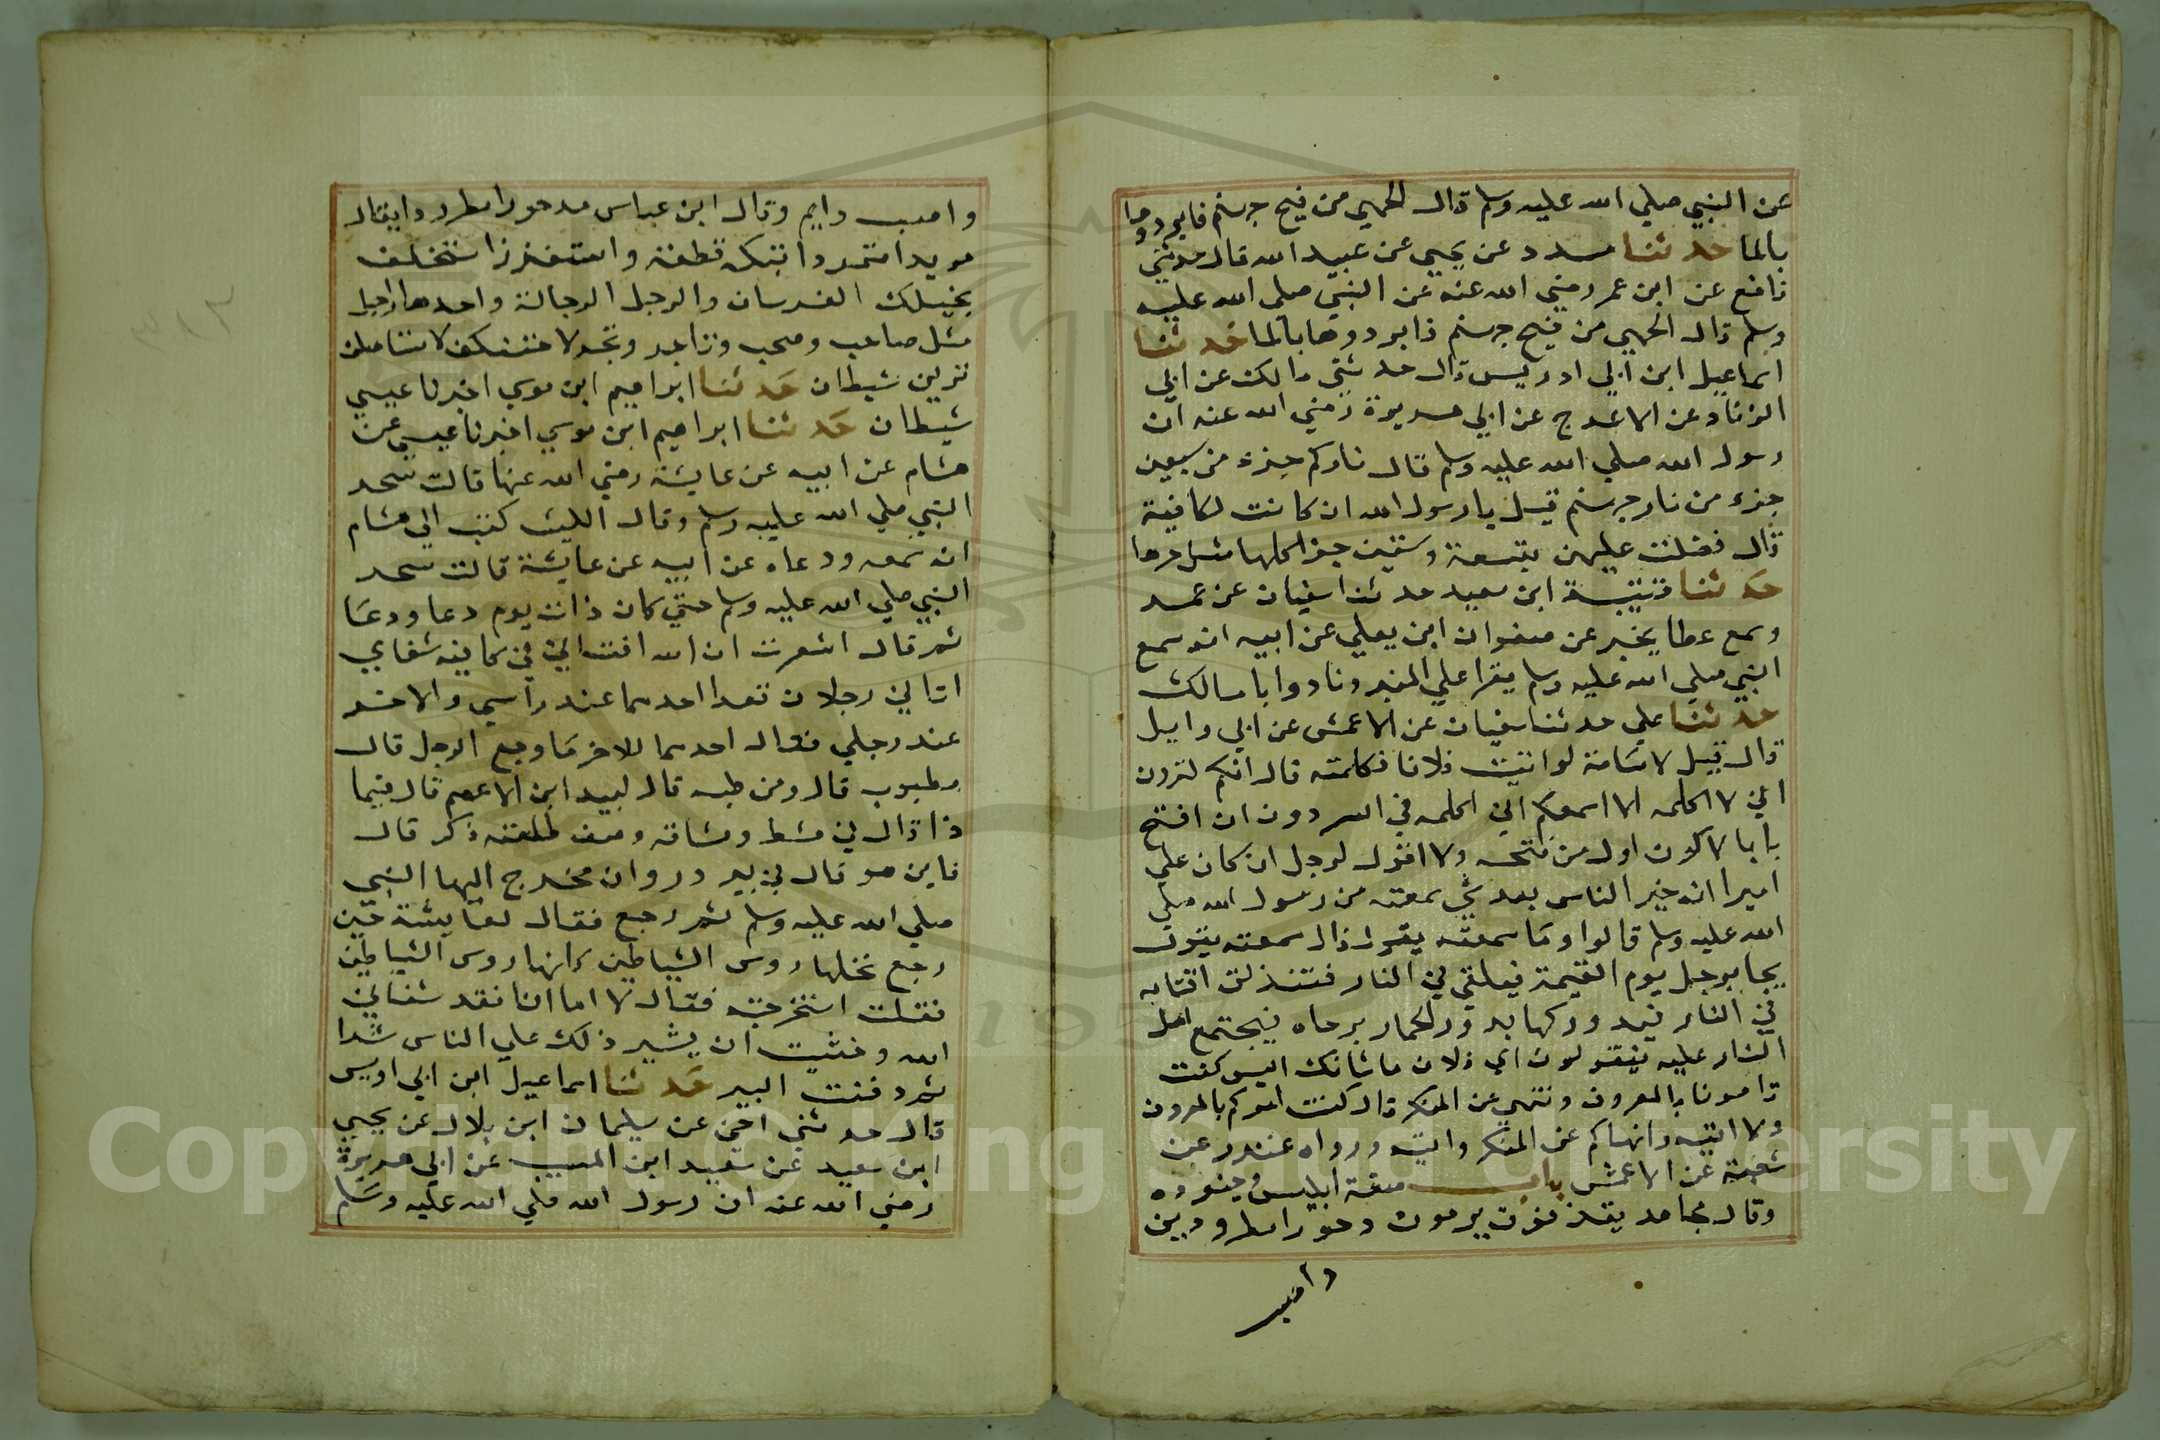 عن النبي صلي الله عليه وسلم قال الحمي من فيح جهنم فابردوها
بالما حدثنا مسدد عن يحيي عن عبيد الله قال حدثني
نافع عن ابن عمر رضي الله عنه عن النبي صلي الله عليه
وسلم قال الحمي من فيح جهنم فابردوها بالما حدثنا
اسماعيل ابن ابي ادريس قال حدثني مالك عن ابي
الزناد عن الاعرج عن ابي هريرة رضي الله عنه ان
رسول الله صلي الله عليه وسلم قال ناركم جزء من سبعين
جزء من نار جهنم قيل يا رسول الله ان كانت لكافية
قال فضلت عليهن بتسعة وستين جزا كلها مثل حرها
حدثنا قتيبة ابن سعيد حدثنا سفيان عن عمر
وسمع عطا يخبر عن صفوان ابن يعلي عن ابيه انه سمع
النبي صلي الله عليه وسلم يقرا علي المنبر ونادوا يا مالك
حدثنا علي حدثنا سفيان عن الاعمش عن ابي وايل
قال قيل لاسامة لو اتيت فلانا فكلمته قال انكم لترون
اني لا اكلمه الا اسمعكم اني اكلمه في السر دون ان افتح
بابا لا اكون اول من فتحه ولا اقول لرجل ان كان علي
اميرا انه خير الناس بعد شي سمعته من رسول الله صلي
الله عليه وسلم قالوا وما سمعته يقول قال سمعته يقول
يجا برجل يوم القيمة فيلقي في النار فتنذلق اقتابه
في النار فيدور كما يدور الحمار برحاه فيجتمع اهل
النار عليه فيقولون اي فلان ما شانك اليس كنت
تامرنا بالمعروف وتنهي عن المنكر قال كنت امركم بالمعروف
ولا اتيه وانهاكم عن المنكر واتيه ورواه غندر عن
شعبة عن الاعمش باب صفة ابليس وجنوده
وقال مجاهد يقذفون يرمون دحورا مطرودين
واصب
واصب دايم وقال ابن عباس مدحورا مطرودا يقال
مريدا متمردا بتكه قطعه واستفزز استخلف
بخيلك الفرسان والرجل الرجالة واحدها راجل
مثل صاحب وصحب وتاجر وتجر لاحتنكن لاستاصلن
قرين شيطان حدثنا ابراهيم ابن موسي اخبرنا عيسي
شيطان حدثنا ابراهيم ابن موسي اخبرنا عيسي عن
هشام عن ابيه عن عايشة رضي الله عنها قالت سحر
النبي صلي الله عليه وسلم وقال الليث كتب الي هشام
انه سمعه ودعاه عن ابيه عن عايشة قالت سحر
النبي صلي الله عليه وسلم حتي كان ذات يوم دعا ودعا
ثم قال اشعرت ان الله افتاني في ما فيه شفاي
اتاني رجلان قعد احدهما عند راسي والاخر
عند رجلي فقال احدهما للاخر ما وجع الرجل قال
مطبوب قال ومن طبه قال لبيد ابن الاعصم قال فيما
ذا قال في مشط ومشاقه وجف طلعته ذكر قال
فاين هو قال في بير دروان فخرج اليها النبي
صلي الله عليه وسلم ثم رجع فقال لعايشة حين
رجع نخلها روس الشياطين كانها روس الشياطين
فقلت استخرجته فقال لا اما انا فقد شفاني
الله وخشيت ان يثير ذلك علي الناس شرا
ثم دفنت البير حدثنا اسماعيل ابن ابي اويس
قال حدثني اخي عن سليمان ابن بلال عن يحيي
ابن سعيد عن سعيد ابن المسيب عن ابي هريرة
رضي الله عنه ان رسول الله صلي الله عليه وسلم
٣١٣
Copyright © King Saud University